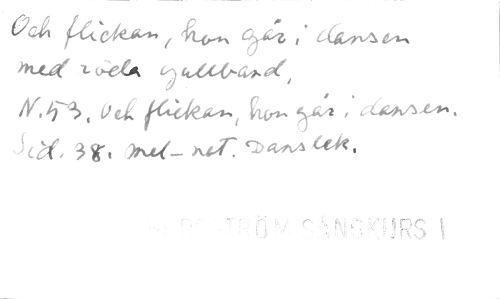 Och flickan, hon går i dansen
med röda gullband,
N.53. Och flickan, hon går i dansen.
Sid. 38. mel-not. Danslek.
BERGSTRÖM SÅNGKURS I